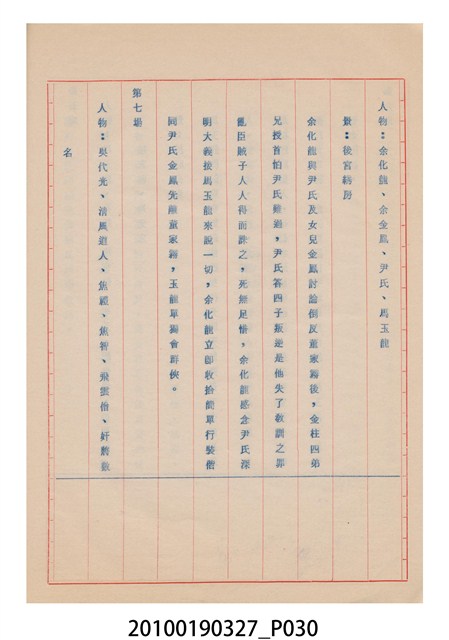 人物：余化龍、余金鳳、尹氏、馬玉龍
景：後宮綉房
余化龍與尹氏及女兒金鳳討論倒反董家霧後，金柱四弟
兄授首怕尹氏難過，尹氏答四子叛逆是他失了教訓之罪
亂臣賊子人人得而誅之，死無足惜，余化龍感念尹氏深
明大義後馬玉龍來說一切，余化龍立即收拾簡單行裝偕
同尹氏金鳳先離董家霧，玉龍單獨會群俠。
第七場
人物：吳代光、清風道人、焦禮、焦智、飛雲僧、奸黨數
名
20100190327_P030